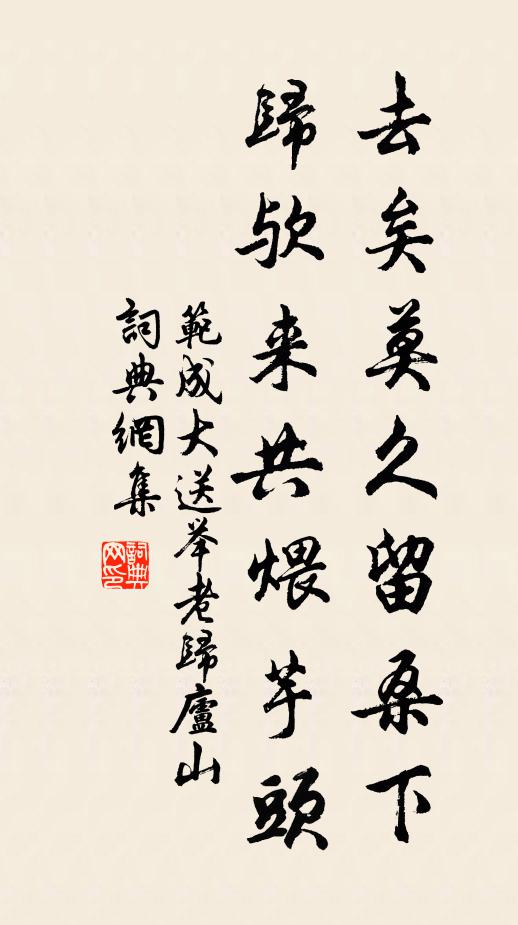 去矣莫久留桑下
歸欤来共煨芋頭
範成大送举老歸廬山
詞典網集
詞典网印